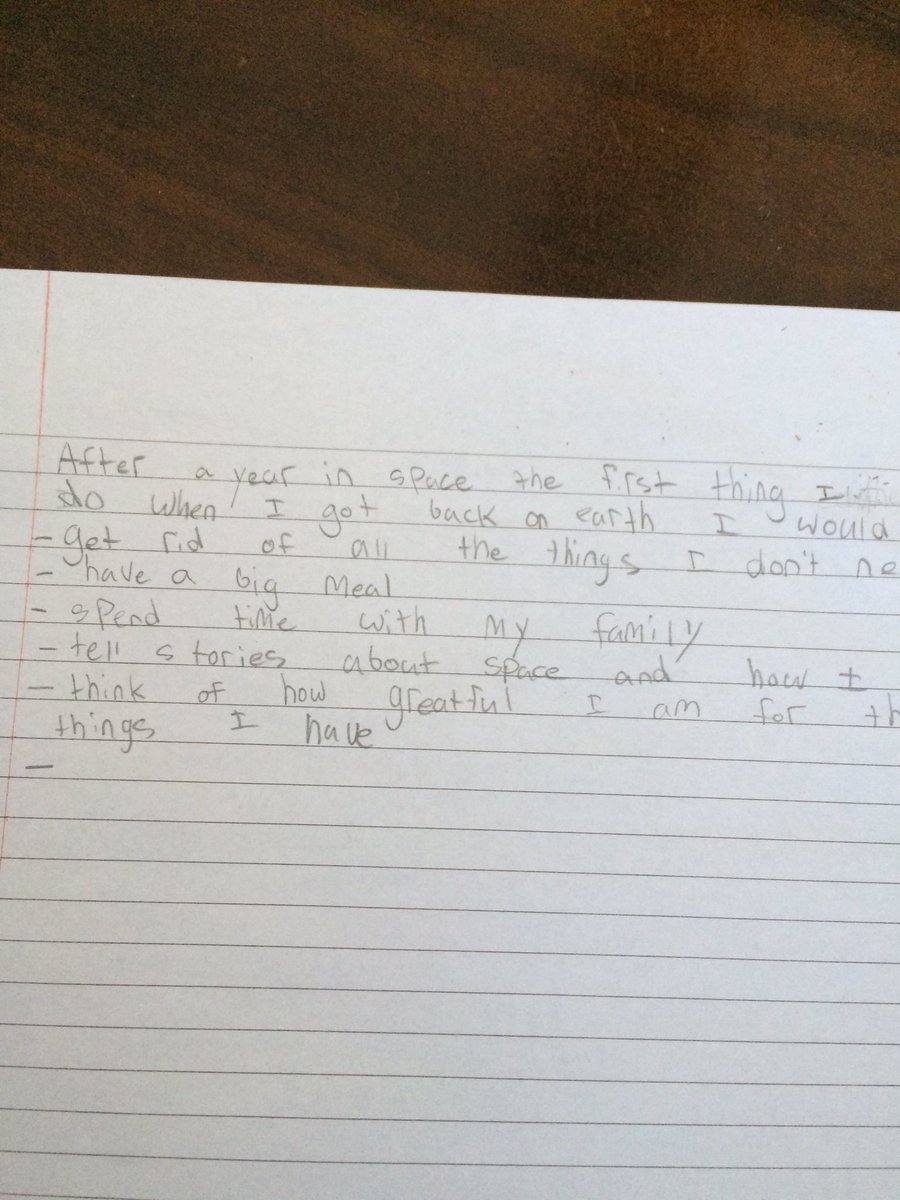 After a year in space the first thing I
do when I got back on earth I would
- get rid of all the things I don't ne
- have a big meal
- spend time with my family
- tell stories about space and how
- think of how greatful I am for th
things I have
-